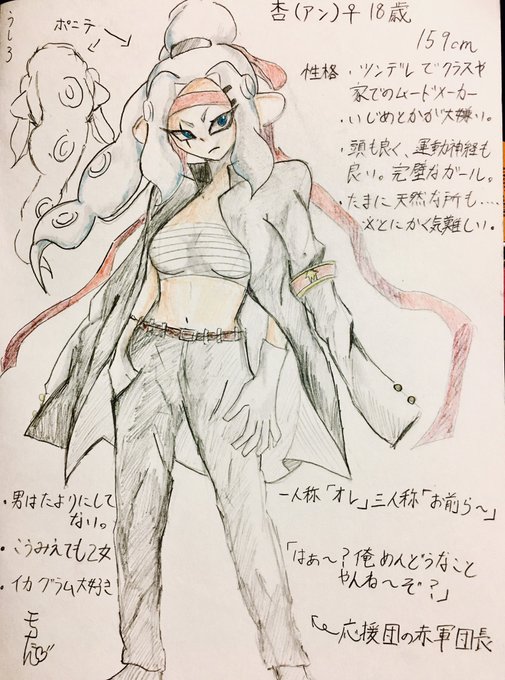 杏(アン)♀18歳
159cm
うしろ
ポニテ
性格・ツンデレでクラスや
家でのムードメーカー
・いじめとかが大嫌い。
・頭も良く、運動神経も
良い。完璧なガール。
・たまに天然な所も….
※とにかく気難しい。
・男はたよりにして
ない。
・こうみえても乙女
・イカグラム大好き
一人称「オレ」三人称「お前ら〜」
「はぁ〜?俺めんどうなこと
やんね〜ぞ?」
応援団の赤軍団長